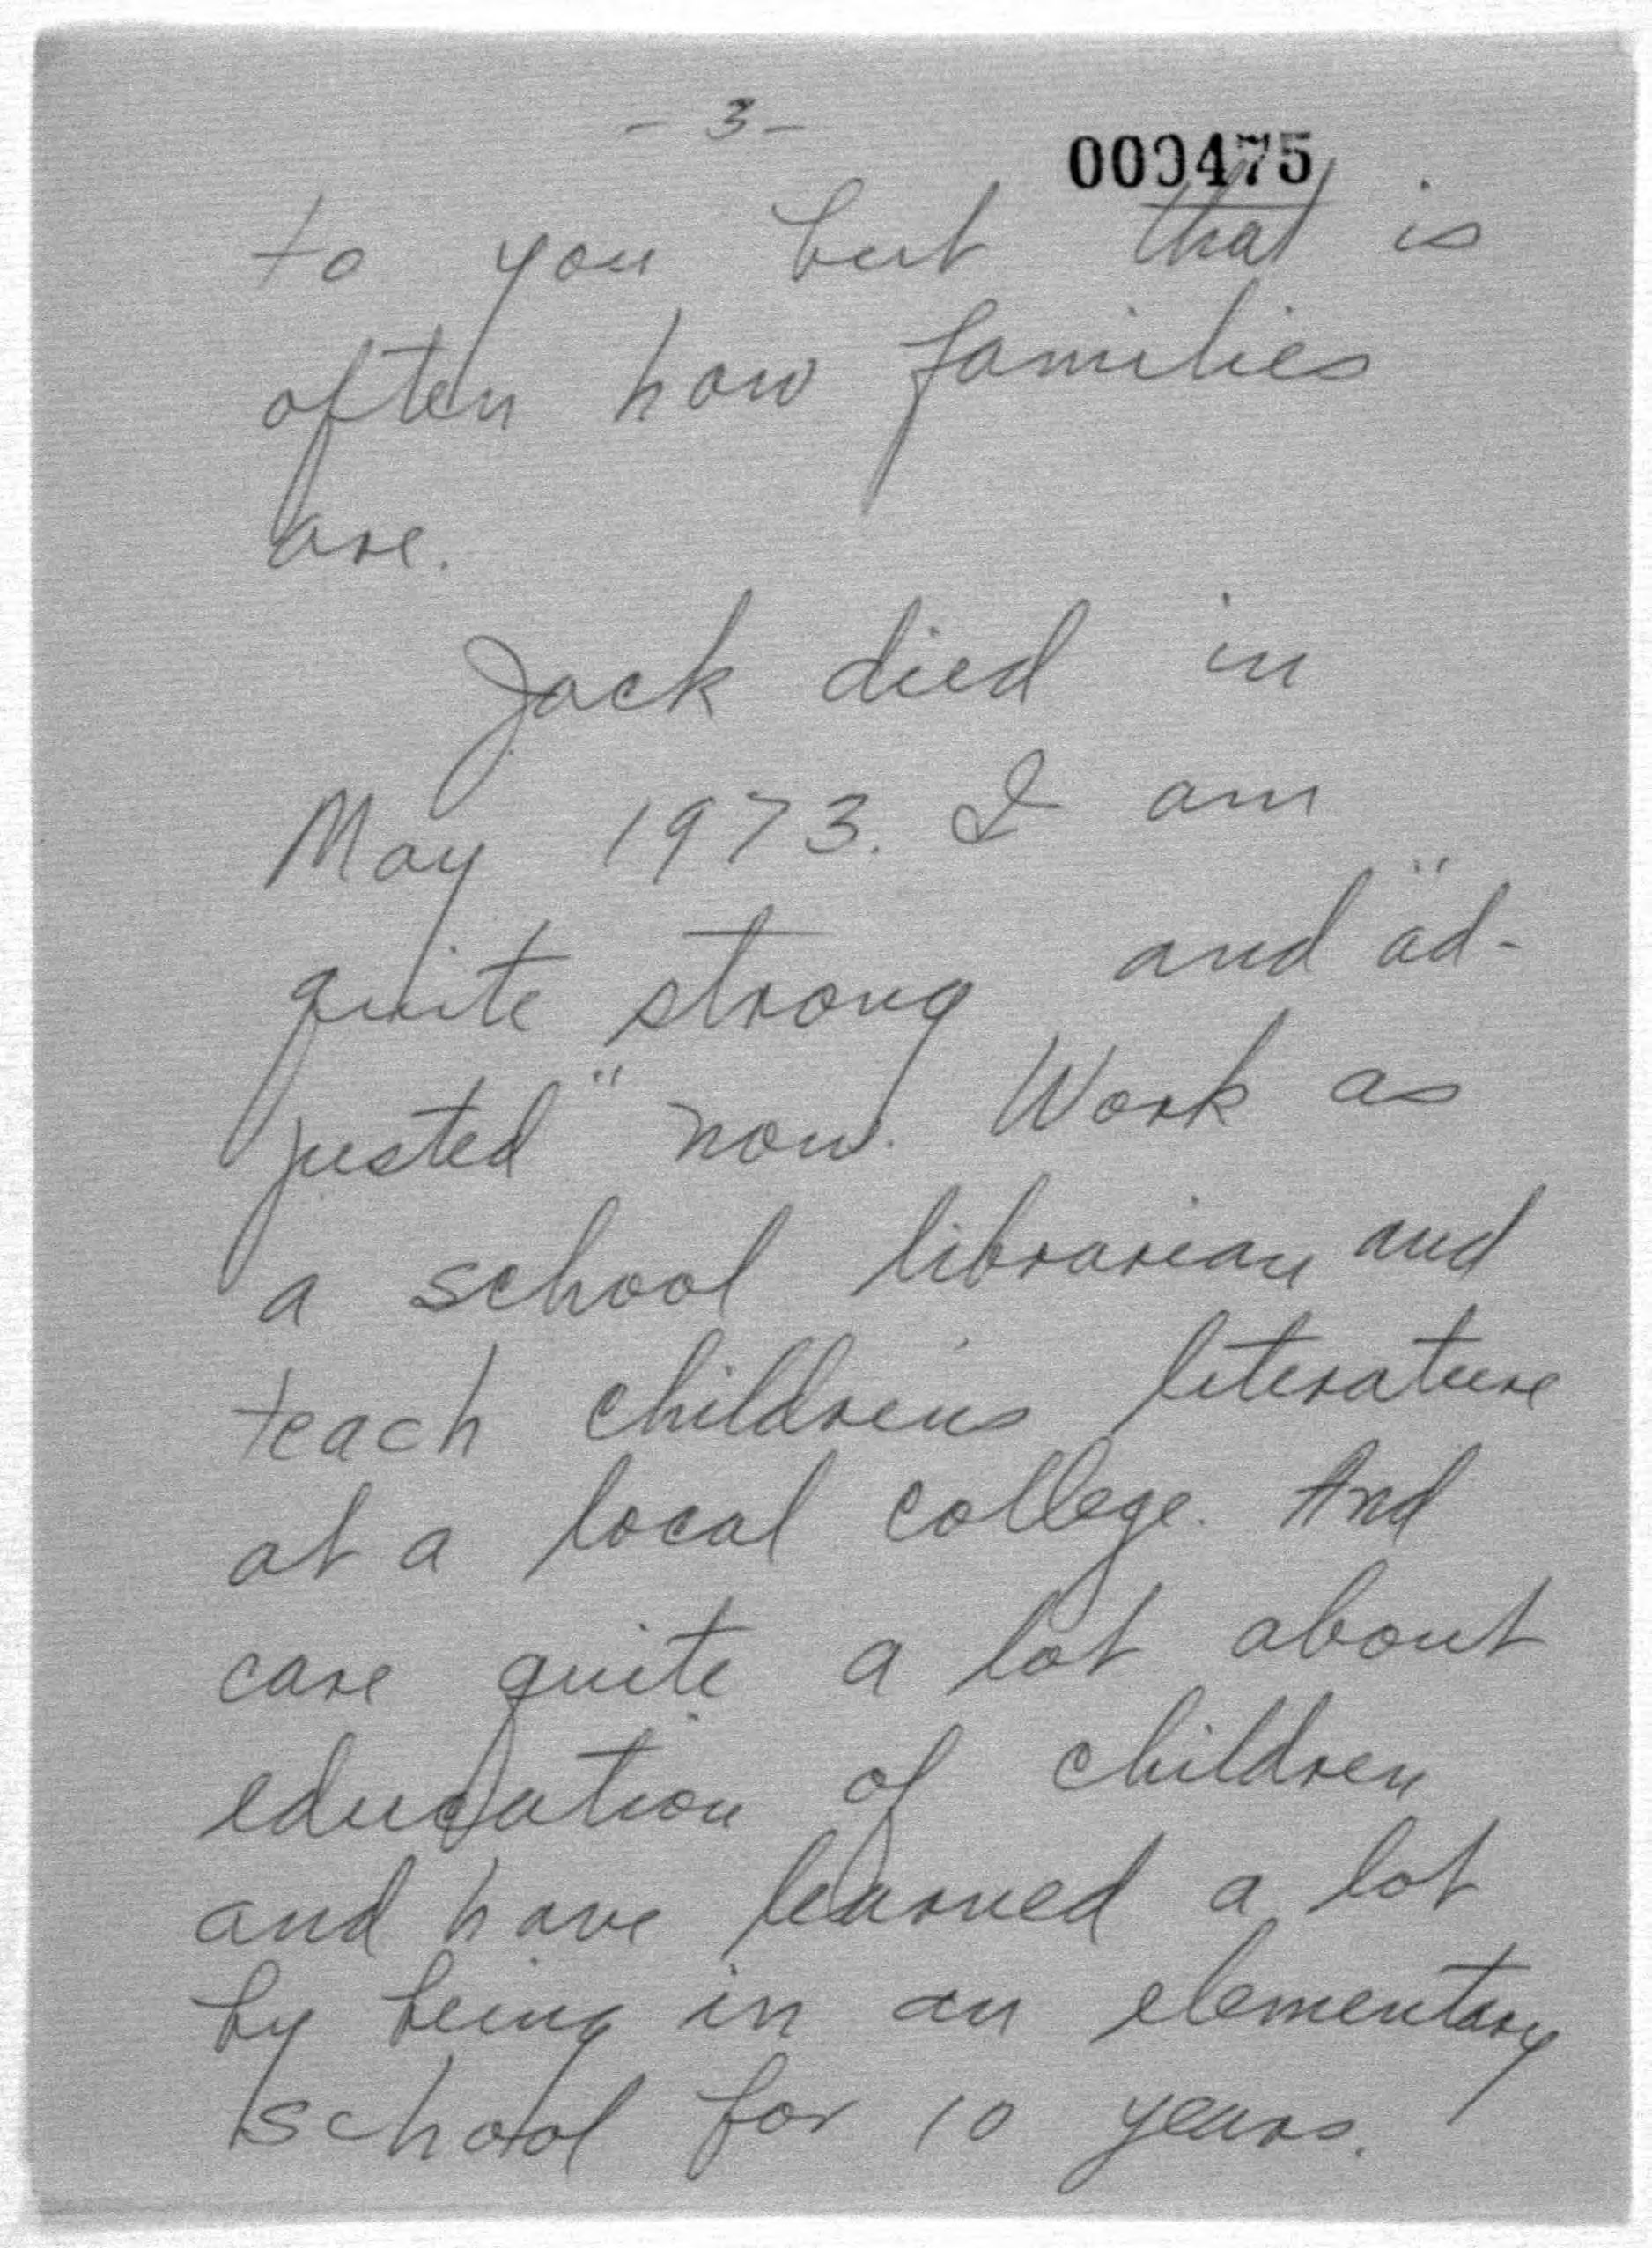 - 3 -
000475
to you but that is
often how families
are.
Jack died in
May 1973. I am
quite strong and "ad-
justed" now. Work as
a school librarian and
teach childrens literature
at a local college. And
care quite a lot about
education of children
and have learned a lot
by being in an elementary
school for 10 years.